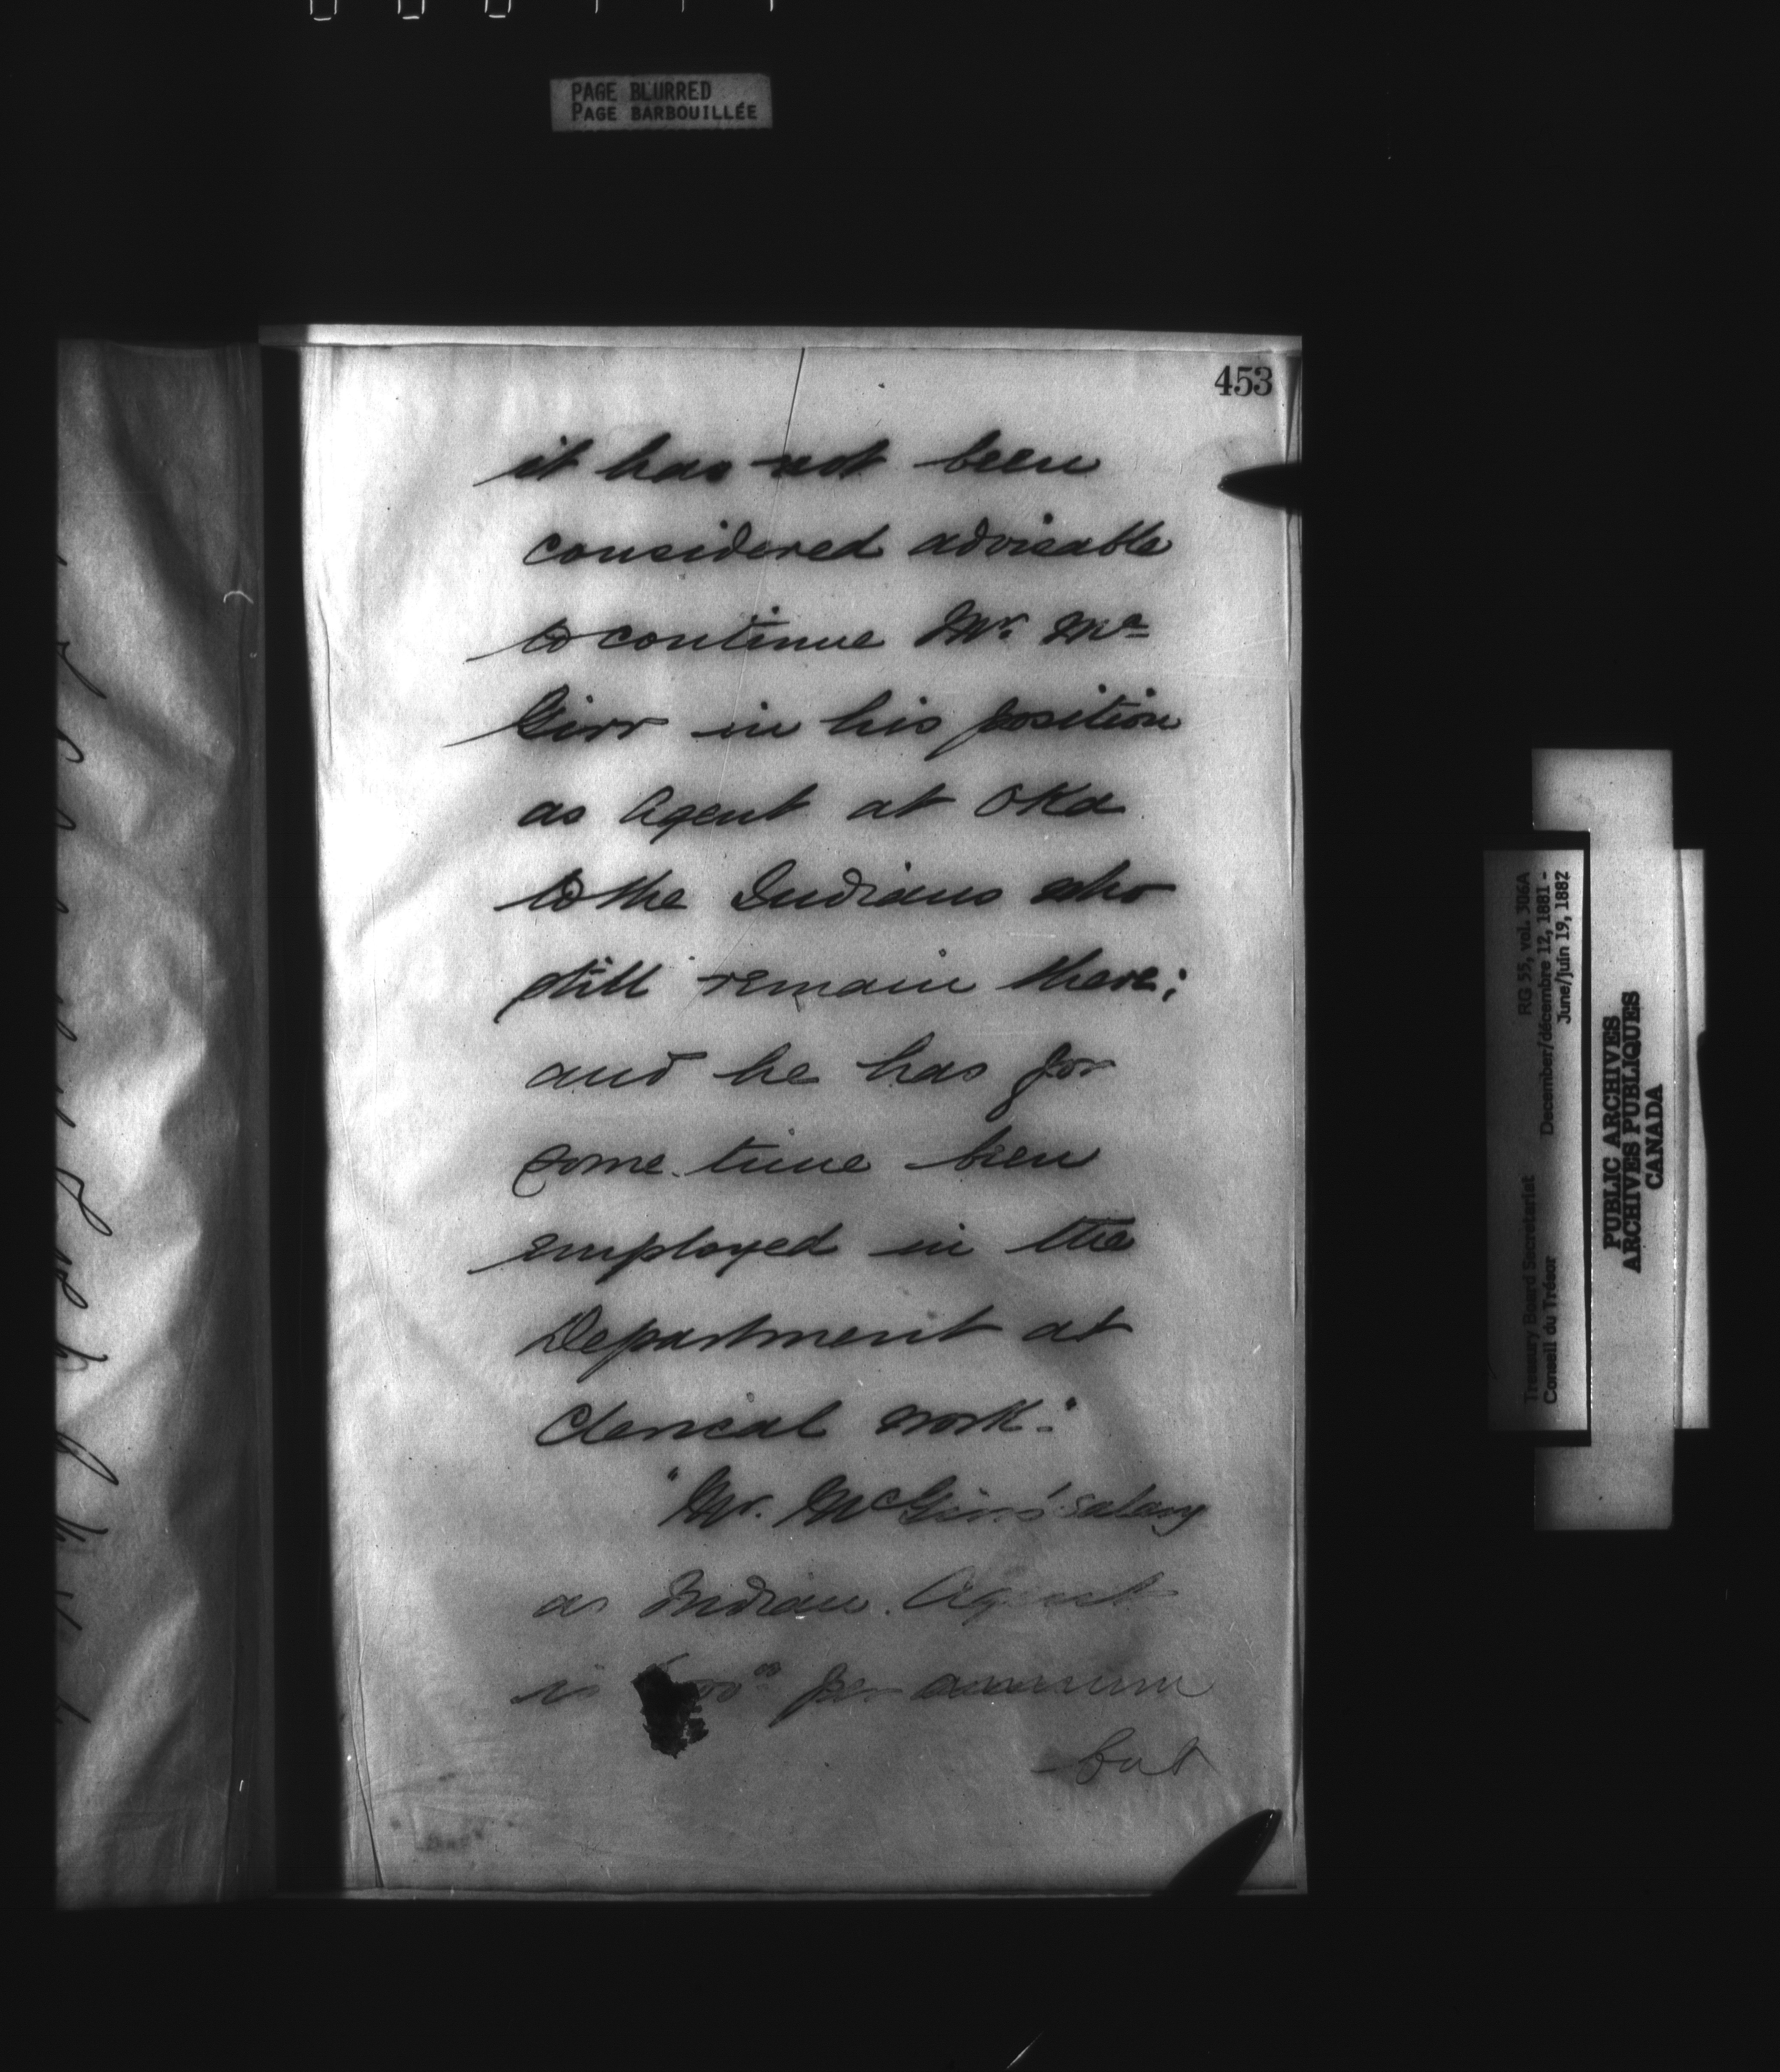 PAGE BLURRED
PAGE BARBOUILLÉE
453
it has not been
considered advisable
to continue Mr. Mc
Girr in his position
as Agent at Oka
to the Indians who
still remain there;
and he has for
some time been
employed in the
Department at
Clerical work."
"Mr. McGirr's salary
as Indian Agent
is per annum
but
Treasury Board Secretariat RG 55, vol. 306A
Conseil du Trésor December/décembre 12, 1881 -
June/juin 19, 1882
PUBLIC ARCHIVES
ARCHIVES PUBLIQUES
CANADA